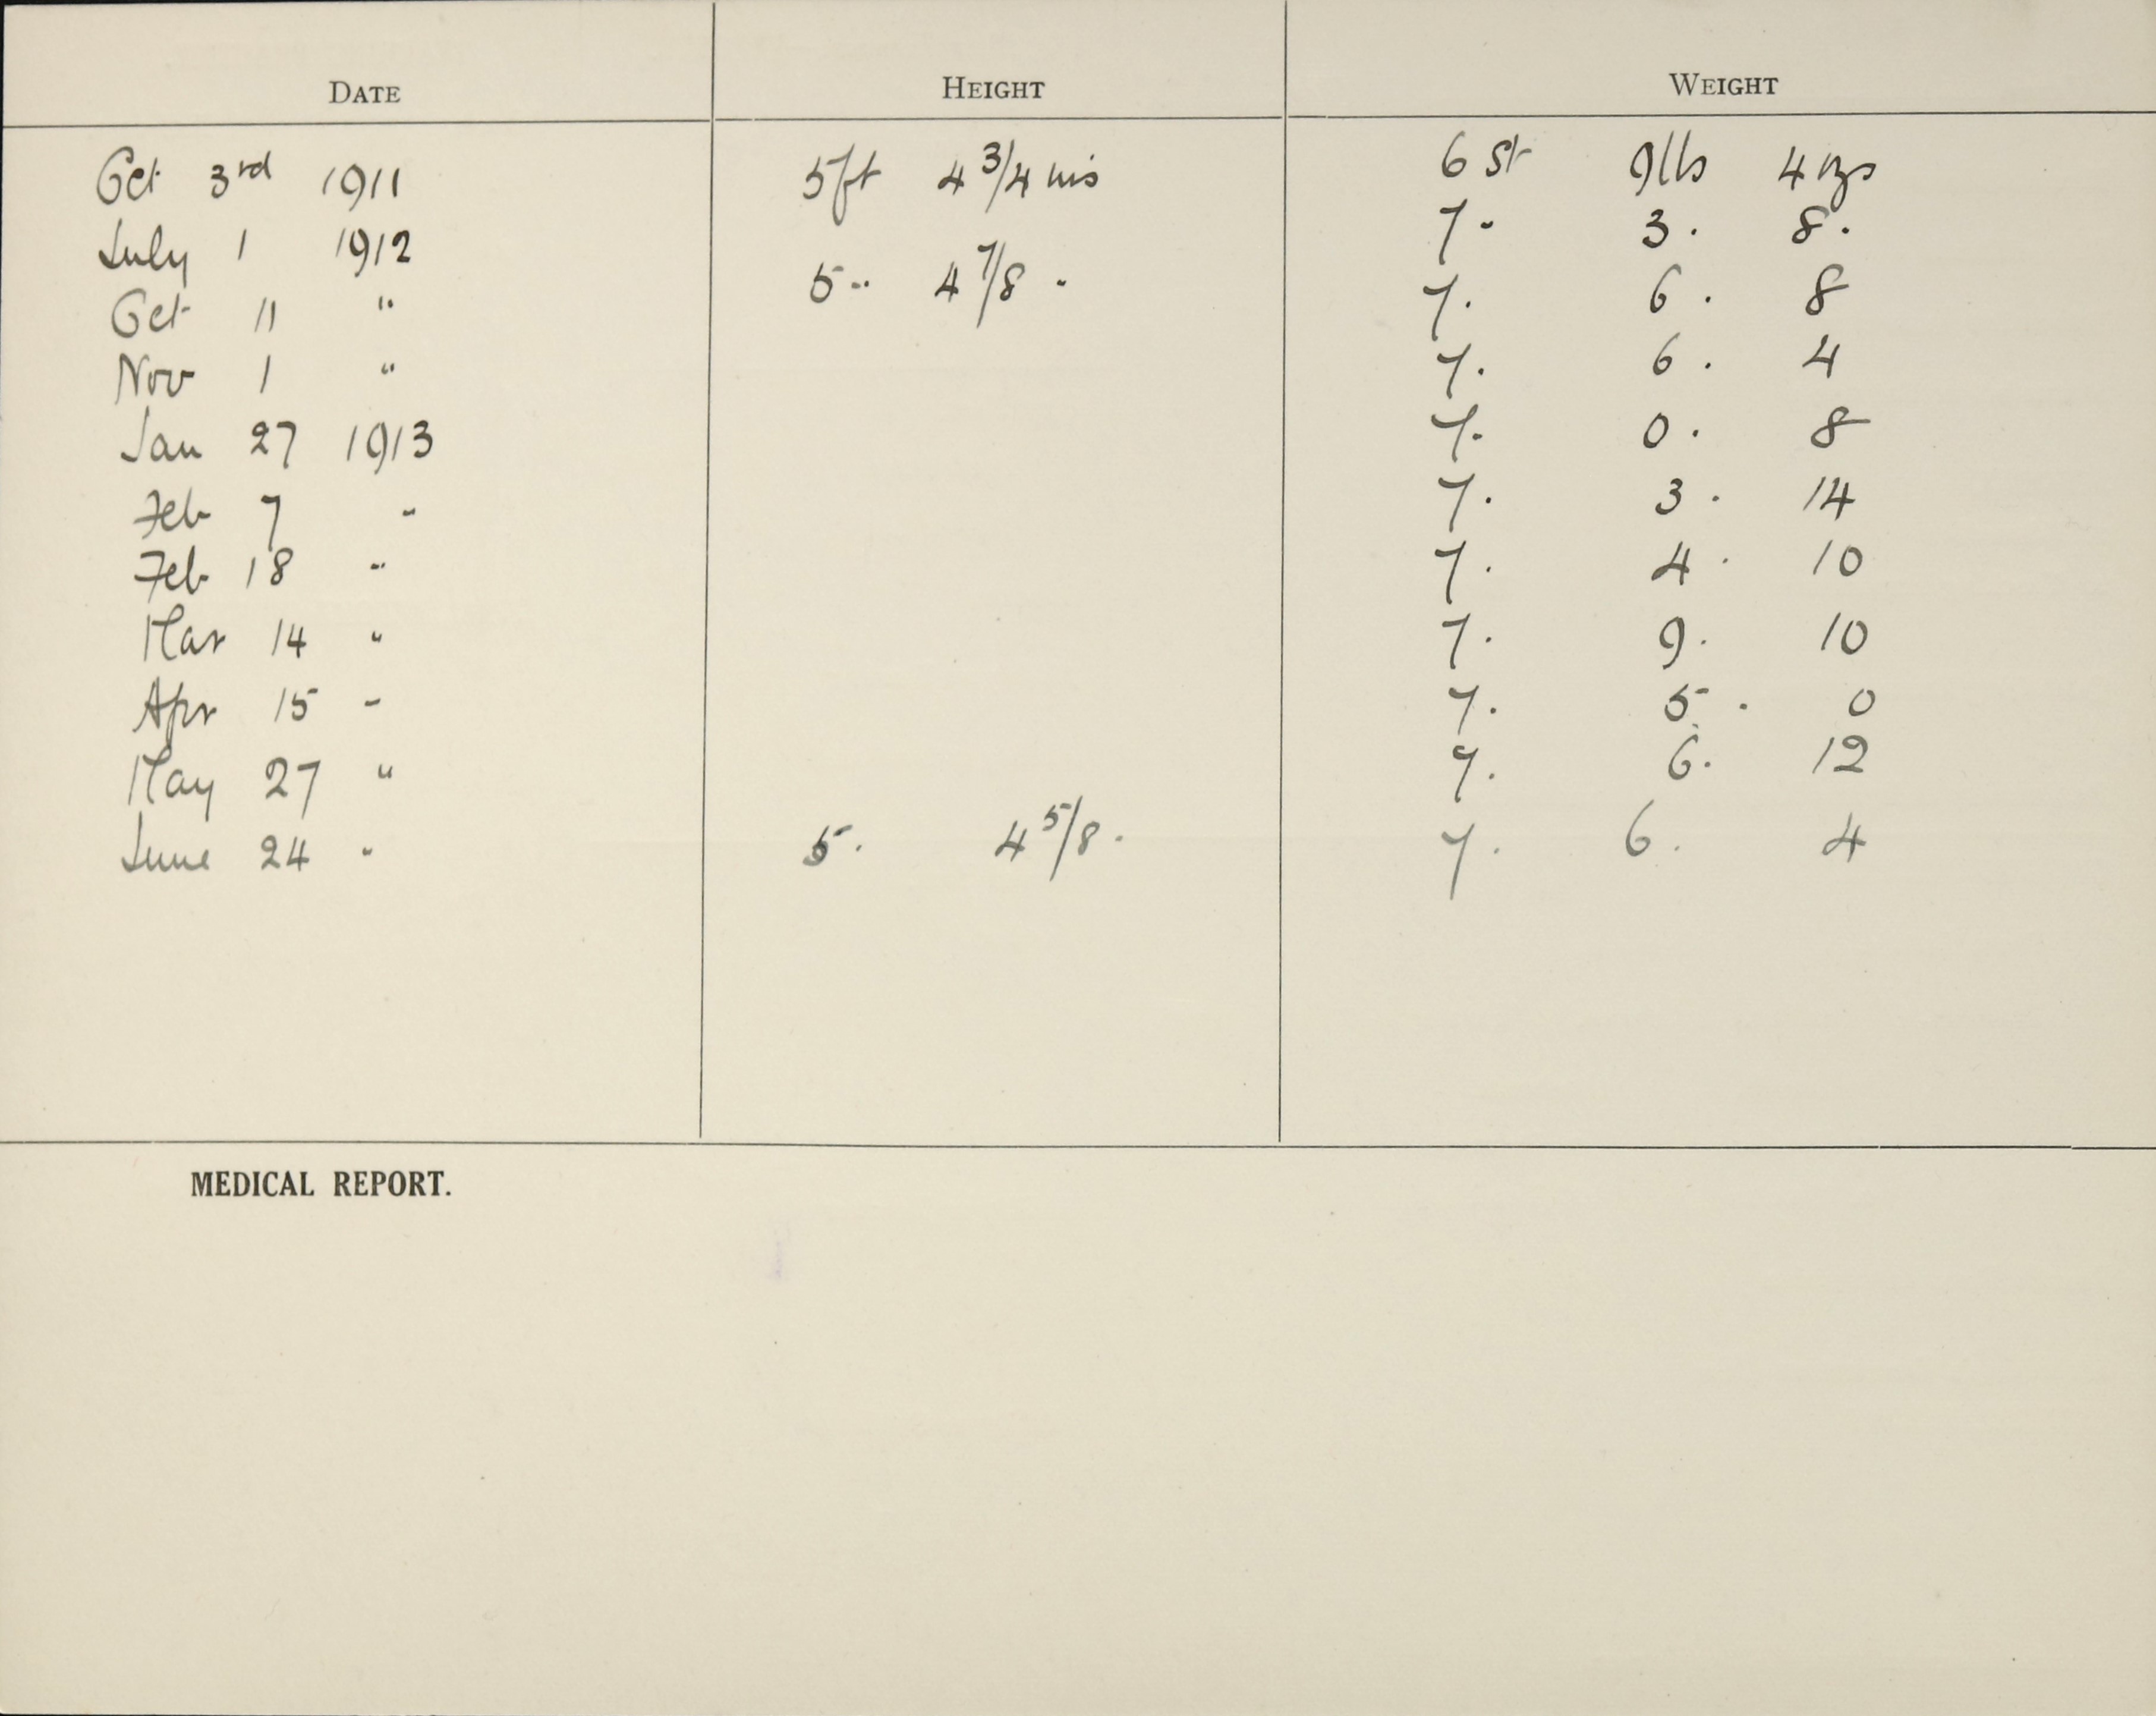 DATE HEIGHT WEIGHT
Oct 3rd 1911 5ft 4 3/4 ins 6 St 9lbs 4 ozs
July 1 1912 7. 3. 8.
Oct 11 " 5 .. 4 7/8 .. 7. 6. 8
Nov 1 " 7. 6. 4
Jan 27 1913 7. 0. 8
Feb 7 " 7. 3. 14
Feb 18 " 7. 4. 10
Mar 14 " 7. 9. 10
Apr 15 " 7. 5. 0
May 27 " 7. 6. 12
June 24 " 5. 4 5/8 . 7. 6. 4
MEDICAL REPORT.